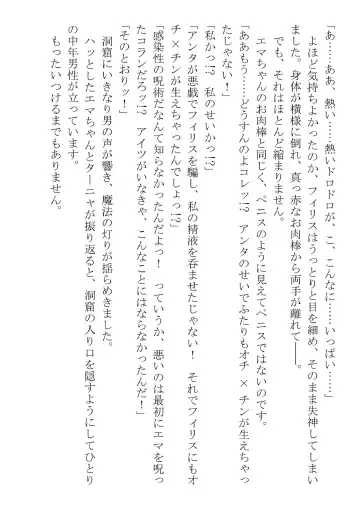 「あ……ああ、熱い……熱いドロドロが、こ、こんなに……いっぱい……」
　よほど気持ちよかったのか、フィリスはうっとりと目を細め、そのまま失神してしまい
ました。身体が横様に倒れ、真っ赤なお肉棒から両手が離れて――。
　でも、それはほとんど縮まりません。
　エマちゃんのお肉棒と同じく、ペニスのように見えてペニスではないのです。
「ああもう……どうすんのよコレッ!?　アンタのせいでふたりもオチ×チンが生えちゃっ
たじゃない！」
「私かっ!?　私のせいかっ!?」
「アンタが悪戯でフィリスを騙し、私の精液を呑ませたじゃない！　それでフィリスにもオ
チ×チンが生えちゃったんでしょっ!?」
「感染性の呪術だなんて知らなかったんだよっ！　っていうか、悪いのは最初にエマを呪っ
たコランだろッ!?　アイツがいなきゃ、こんなことにはならなかったんだ！」
「そのとおりッ！」
　洞窟にいきなり男の声が響き、魔法の灯りが揺らめきました。
　ハッとしたエマちゃんとターニャが振り返ると、洞窟の入り口を隠すようにしてひとり
の中年男性が立っています。
　もったいつけるまでもありません。